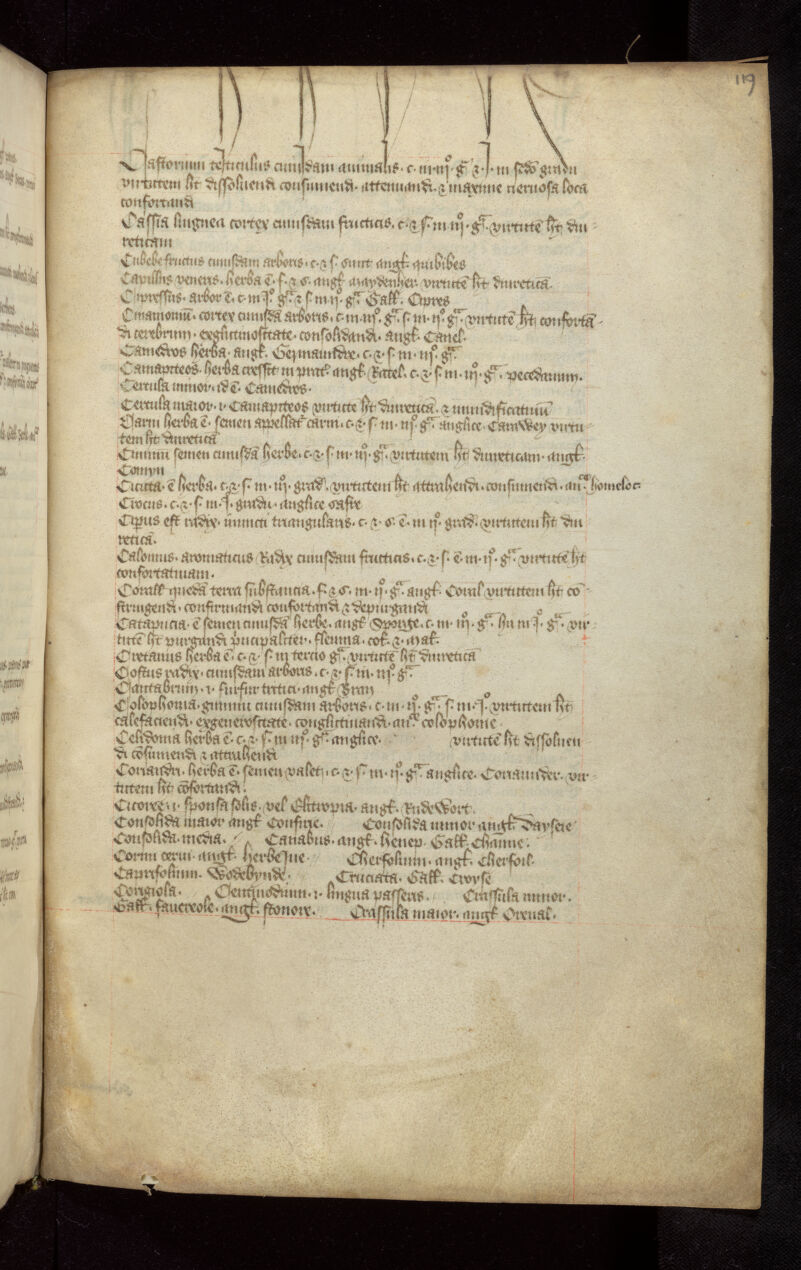 119
Castorium testiculus cuiusdam animalis. c. in iiiº. gᵃ. ⁊. J. in sedo gradu
virtutem ht dissoluendi consumendi. attenuandi. ⁊ maxime neruosa loca
confortandi
Cassia lingnea cortex cuiusdam fructicis. c. ⁊ s. in iijº. gᵃ. virtutē ht diu-
reticam
Cubebe fructus cuiusdam arboris. c. ⁊ s. sunt angł. quibibes
Capillus veneris. herba ē. f. ⁊ s. angł. maydenher. virtutē ht diureticā.
Cipressus. arbor ē. c. in Jº. gᵃ. ⁊ s. in ijº. gᵃ. Gałł. Cipres
Cinamomū. cortex cuiusdā arboris. c. in iijº. gᵃ. s. in ijº. gᵃ. virtutē ht confortā-
di cerebrum. ex glutinositate. consolidandi. angł. Canel.
Camedros herba. angł. Germaundre. c. ⁊ s. in. iijº. gᵃ.
Camapiteos. herba cressit in prat. angł. Ratel. c. ⁊ s. in. iijº. gᵃ. pecedanum.
Cercula minor. id ē. Camedros.
Cercula maior. i. Camapiteos virtutē ht diureticā. ⁊ mundificatiuā
Carui herba ē. semen appellat carui. c. ⁊ s. in. iijº. gᵃ. anglice. Carawey virtu
tem ht diureticā
Ciminū semen cuiusdā herbe. c. ⁊ s. in. iijº. gᵃ. virtutem ht diureticam. angł.
Comyn
Cicuta. ē herba. c. ⁊ s. in. iiijº. grad. virtutem ht attrahendi. consumendi. homeloc
Crocus. c. ⁊ s. in. J. gradu. anglice safre
Cipus est radix. iunci triangularis. c. ⁊ s. ē. in ijº. grad. virtutem ht diu
reticā.
Calamus. aromaticus Radix cuiusdam fructicis. c. ⁊ s. ē. in. ijº. gᵃ. virtutē ht
confortatiuam.
Corałł quedā terra substancia. f. ⁊ s. in. ijº. gᵃ. angł. Coral virtutem ht cō-
stringendi. confirmandi confortandi ⁊ depurgandi
Catapucia. ē semen cuiusdā herbe. angł Sponge. c. in. iiijº. gᵃ. hu in Jº. gᵃ. vir
tutē ht purgandi principaliter. fleuma. coł. ⁊ mał.
Cretanus herba ē. c. ⁊ s. in tercio gᵃ. virtutē ht diureticā
Costus radix. cuiusdam arboris. c. ⁊ s. in. iijº. gᵃ.
Cantabrum. i. furfur tritici. angł. Bran
Colophonia. gummi cuiusdam arboris. c. in. ijº. gᵃ. s. in. Jº. virtutem ht
calefaciendi. conglutinandi. colophonie.
Celidonia herba ē. c. ⁊ s. in iijº. gᵃ. anglice. virtutē ht dissoluen
di cōsumendi ⁊ attrahendi
Coriandri. herba ē. semen valet. c. ⁊ s. in. ijº. gᵃ. anglice. Coriaunder. vir
tutem ht cōfortandi.
Cicoree. i. sponsa solis. vel Elitropia. angł. Rudewort.
Consolida maior angł Confirie. Consolida minor angł. Dayseie
Consolida. media. Canabus. angł. henep. Gałł. Chanue.
Cornu cerui. angł. herbe Iue. Cherfolium. angł. Cherfoil.
Caprifolium. Wodebynde. Cruciata. Gałł. Croyse
Corigiola. Centinodium. i. lingua passeris. Crassula minor.
Gałł. fauereole. angł. stonore. Crassula maior. angł Orual.